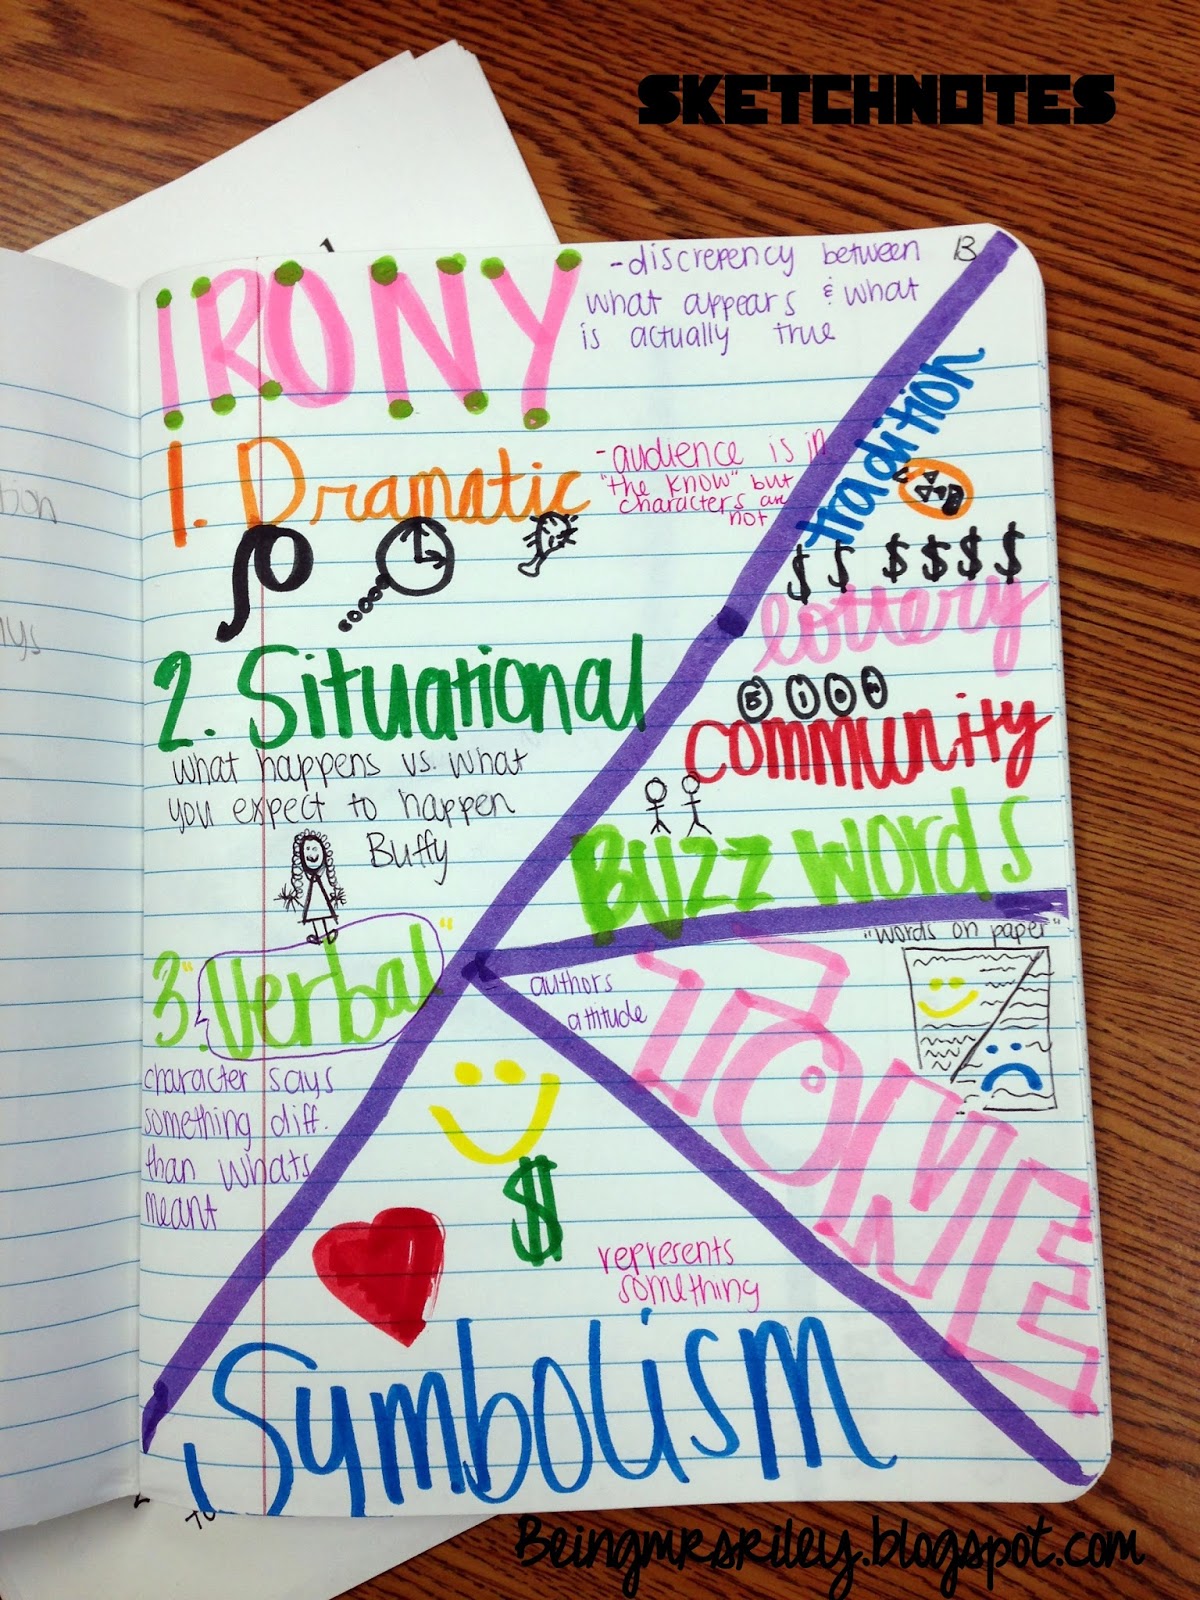 SKETCHNOTES
13
IRONY
-discrepency between
what appears & what
is actually true
1. Dramatic
-audience is in
"the know" but
characters are
not
2. Situational
what happens vs. what
you expect to happen
Buffy
3. "Verbal"
character says
something diff.
than whats
meant
tradition
$ $ $ $ $ $
lottery
community
Buzz words
"words on paper"
authors
attitude
TONE
$
represents
something
Symbolism
Beingmrsriley.blogspot.com